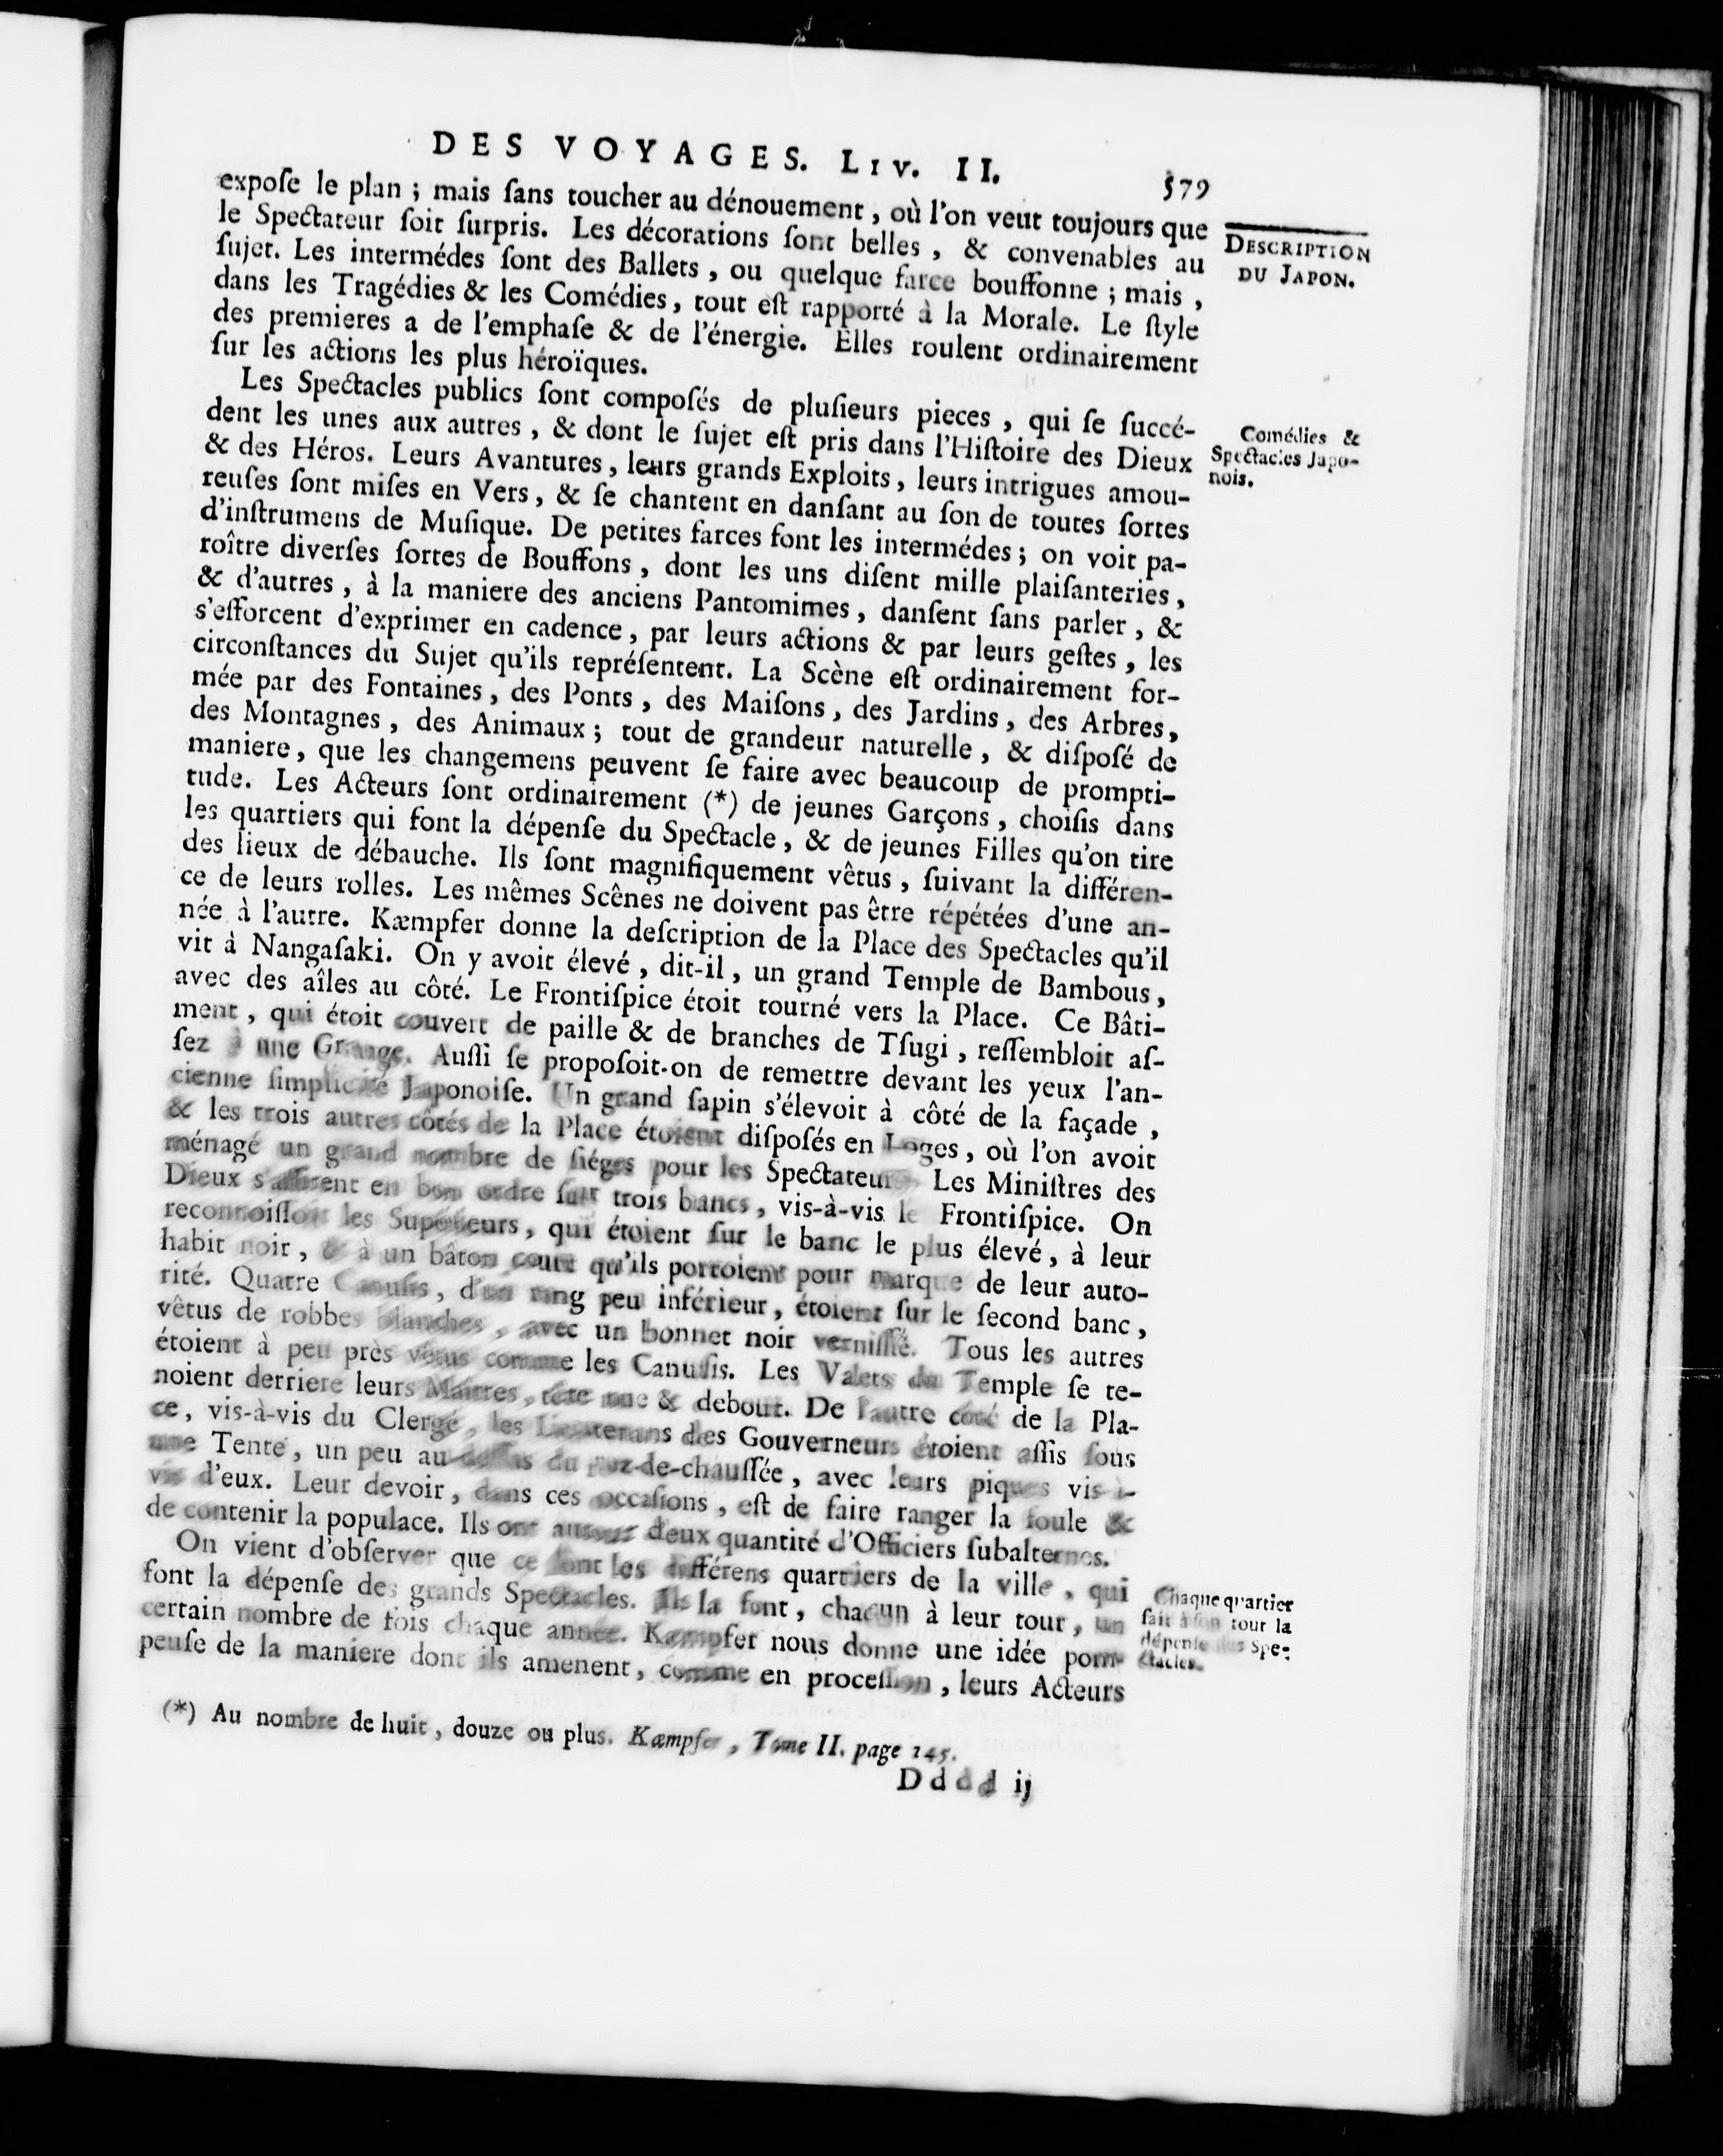 DES VOYAGES. LIV. II. 579
expoſe le plan ; mais ſans toucher au dénouement, où l'on veut toujours que
le Spectateur ſoit ſurpris. Les décorations ſont belles, & convenables au
ſujet. Les intermédes ſont des Ballets, ou quelque farce bouffonne ; mais,
dans les Tragédies & les Comédies, tout eſt rapporté à la Morale. Le ſtyle
des premieres a de l'emphaſe & de l'énergie. Elles roulent ordinairement
ſur les actions les plus héroïques.
DESCRIPTION
DU JAPON.
Les Spectacles publics ſont compoſés de pluſieurs pieces, qui ſe ſuccé-
dent les unes aux autres, & dont le ſujet eſt pris dans l'Hiſtoire des Dieux
& des Héros. Leurs Avantures, leurs grands Exploits, leurs intrigues amou-
reuſes ſont miſes en Vers, & ſe chantent en danſant au ſon de toutes ſortes
d'inſtrumens de Muſique. De petites farces font les intermédes ; on voit pa-
roître diverſes ſortes de Bouffons, dont les uns diſent mille plaiſanteries,
& d'autres, à la maniere des anciens Pantomimes, danſent ſans parler, &
s'efforcent d'exprimer en cadence, par leurs actions & par leurs geſtes, les
circonſtances du Sujet qu'ils repréſentent. La Scène eſt ordinairement for-
mée par des Fontaines, des Ponts, des Maiſons, des Jardins, des Arbres,
des Montagnes, des Animaux ; tout de grandeur naturelle, & diſpoſé de
maniere, que les changemens peuvent ſe faire avec beaucoup de prompti-
tude. Les Acteurs ſont ordinairement (*) de jeunes Garçons, choiſis dans
les quartiers qui font la dépenſe du Spectacle, & de jeunes Filles qu'on tire
des lieux de débauche. Ils ſont magnifiquement vêtus, ſuivant la différen-
ce de leurs rolles. Les mêmes Scênes ne doivent pas être répétées d'une an-
née à l'autre. Kæmpfer donne la deſcription de la Place des Spectacles qu'il
vit à Nangaſaki. On y avoit élevé, dit-il, un grand Temple de Bambous,
avec des aîles au côté. Le Frontiſpice étoit tourné vers la Place. Ce Bâti-
ment, qui étoit couvert de paille & de branches de Tſugi, reſſembloit aſ-
ſez à une Grange. Auſſi ſe propoſoit-on de remettre devant les yeux l'an-
cienne ſimplicité Japonoiſe. Un grand ſapin s'élevoit à côté de la façade,
& les trois autres côtés de la Place étoient diſpoſés en Loges, où l'on avoit
ménagé un grand nombre de ſiéges pour les Spectateurs. Les Miniſtres des
Dieux s'aſſirent en bon ordre ſur trois bancs, vis-à-vis le Frontiſpice. On
reconnoiſſoit les Supérieurs, qui étoient ſur le banc le plus élevé, à leur
habit noir, & à un bâton court qu'ils portoient pour marque de leur auto-
rité. Quatre Canuſis, d'un rang peu inférieur, étoient ſur le ſecond banc,
vêtus de robbes blanches, avec un bonnet noir verniſſé. Tous les autres
étoient à peu près vêtus comme les Canuſis. Les Valets du Temple ſe te-
noient derriere leurs Maitres, tête nue & debout. De l'autre côté de la Pla-
ce, vis-à-vis du Clergé, les Lieutenans des Gouverneurs étoient aſſis ſous
une Tente, un peu au-deſſus du rez-de-chauſſée, avec leurs piques vis-à-
vis d'eux. Leur devoir, dans ces occaſions, eſt de faire ranger la foule &
de contenir la populace. Ils ont autour d'eux quantité d'Officiers ſubalternes.
Comédies &
Spectacles Japo-
nois.
On vient d'obſerver que ce ſont les différens quartiers de la ville, qui
font la dépenſe des grands Spectacles. Ils la font, chacun à leur tour, un
certain nombre de fois chaque année. Kæmpfer nous donne une idée pom-
peuſe de la maniere dont ils amenent, comme en proceſſion, leurs Acteurs
Chaque quartier
fait à ſon tour la
dépenſe des Spe-
ctacles.
(*) Au nombre de huit, douze ou plus. Kæmpfer, Tome II. page 145.
Dddd ij